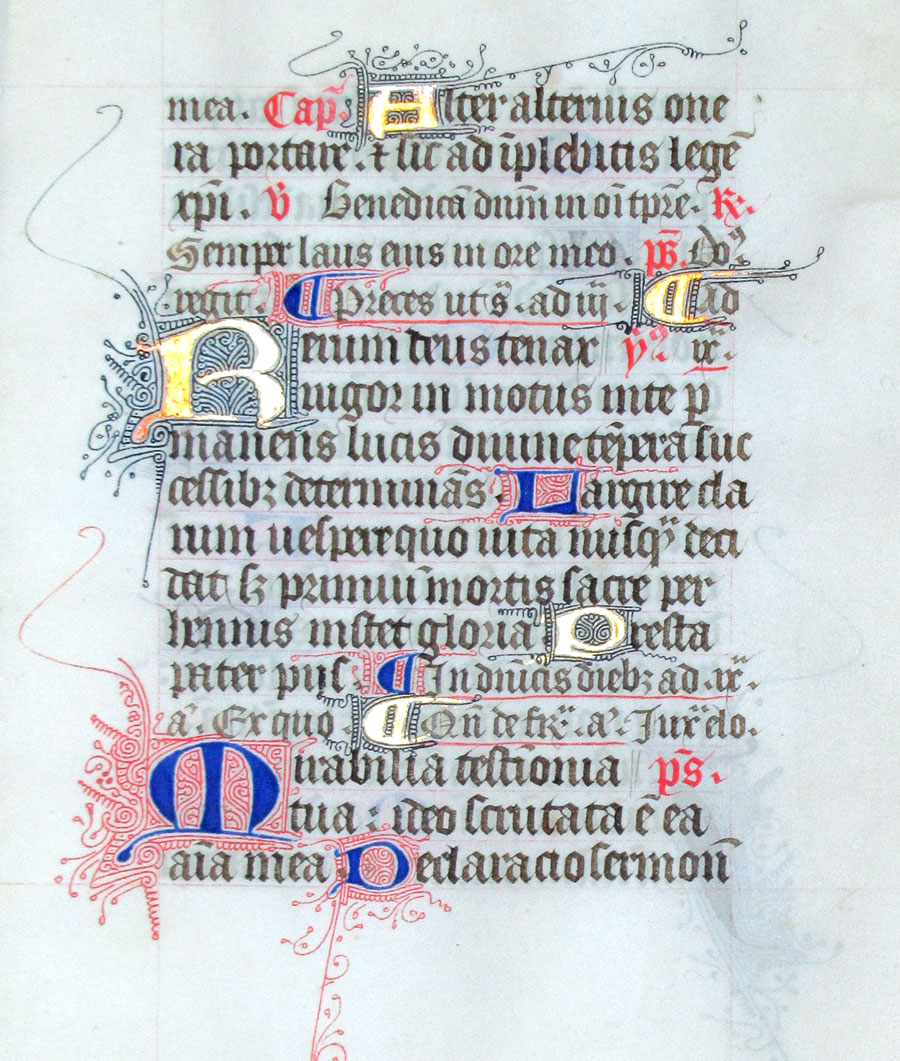 mea. Cap̄. Alter alterius one
ra portate. ⁊ sic ad ĩplebitis legē
xp̄i. v̄ Benedicā dn̄m in oī tp̄re. R⁊.
Semper laus eius in ore meo. ps̄. Dn̄⁹
regit. Preces ut s̄. ad iij. Ad
Rerum deus tenax ẏ⁹ ix.
uigor in motus in te p̲
manens lucis diurne tēpora suc
cessibꝫ determinās. Largire cla
rum uespere quo uita nusq̄ deci
dat sꝫ premiū mortis sacre per
hennis instet gloria Presta
pater pijs. In dn̄icis diebꝫ ad .ix.
a. Ex quo On̄ de fr̄. a. Iux̄ do.
Mirabilia testīonia ps̄.
tua : ideo scrutata ē ea
aīa mea Declaracio sermon̄